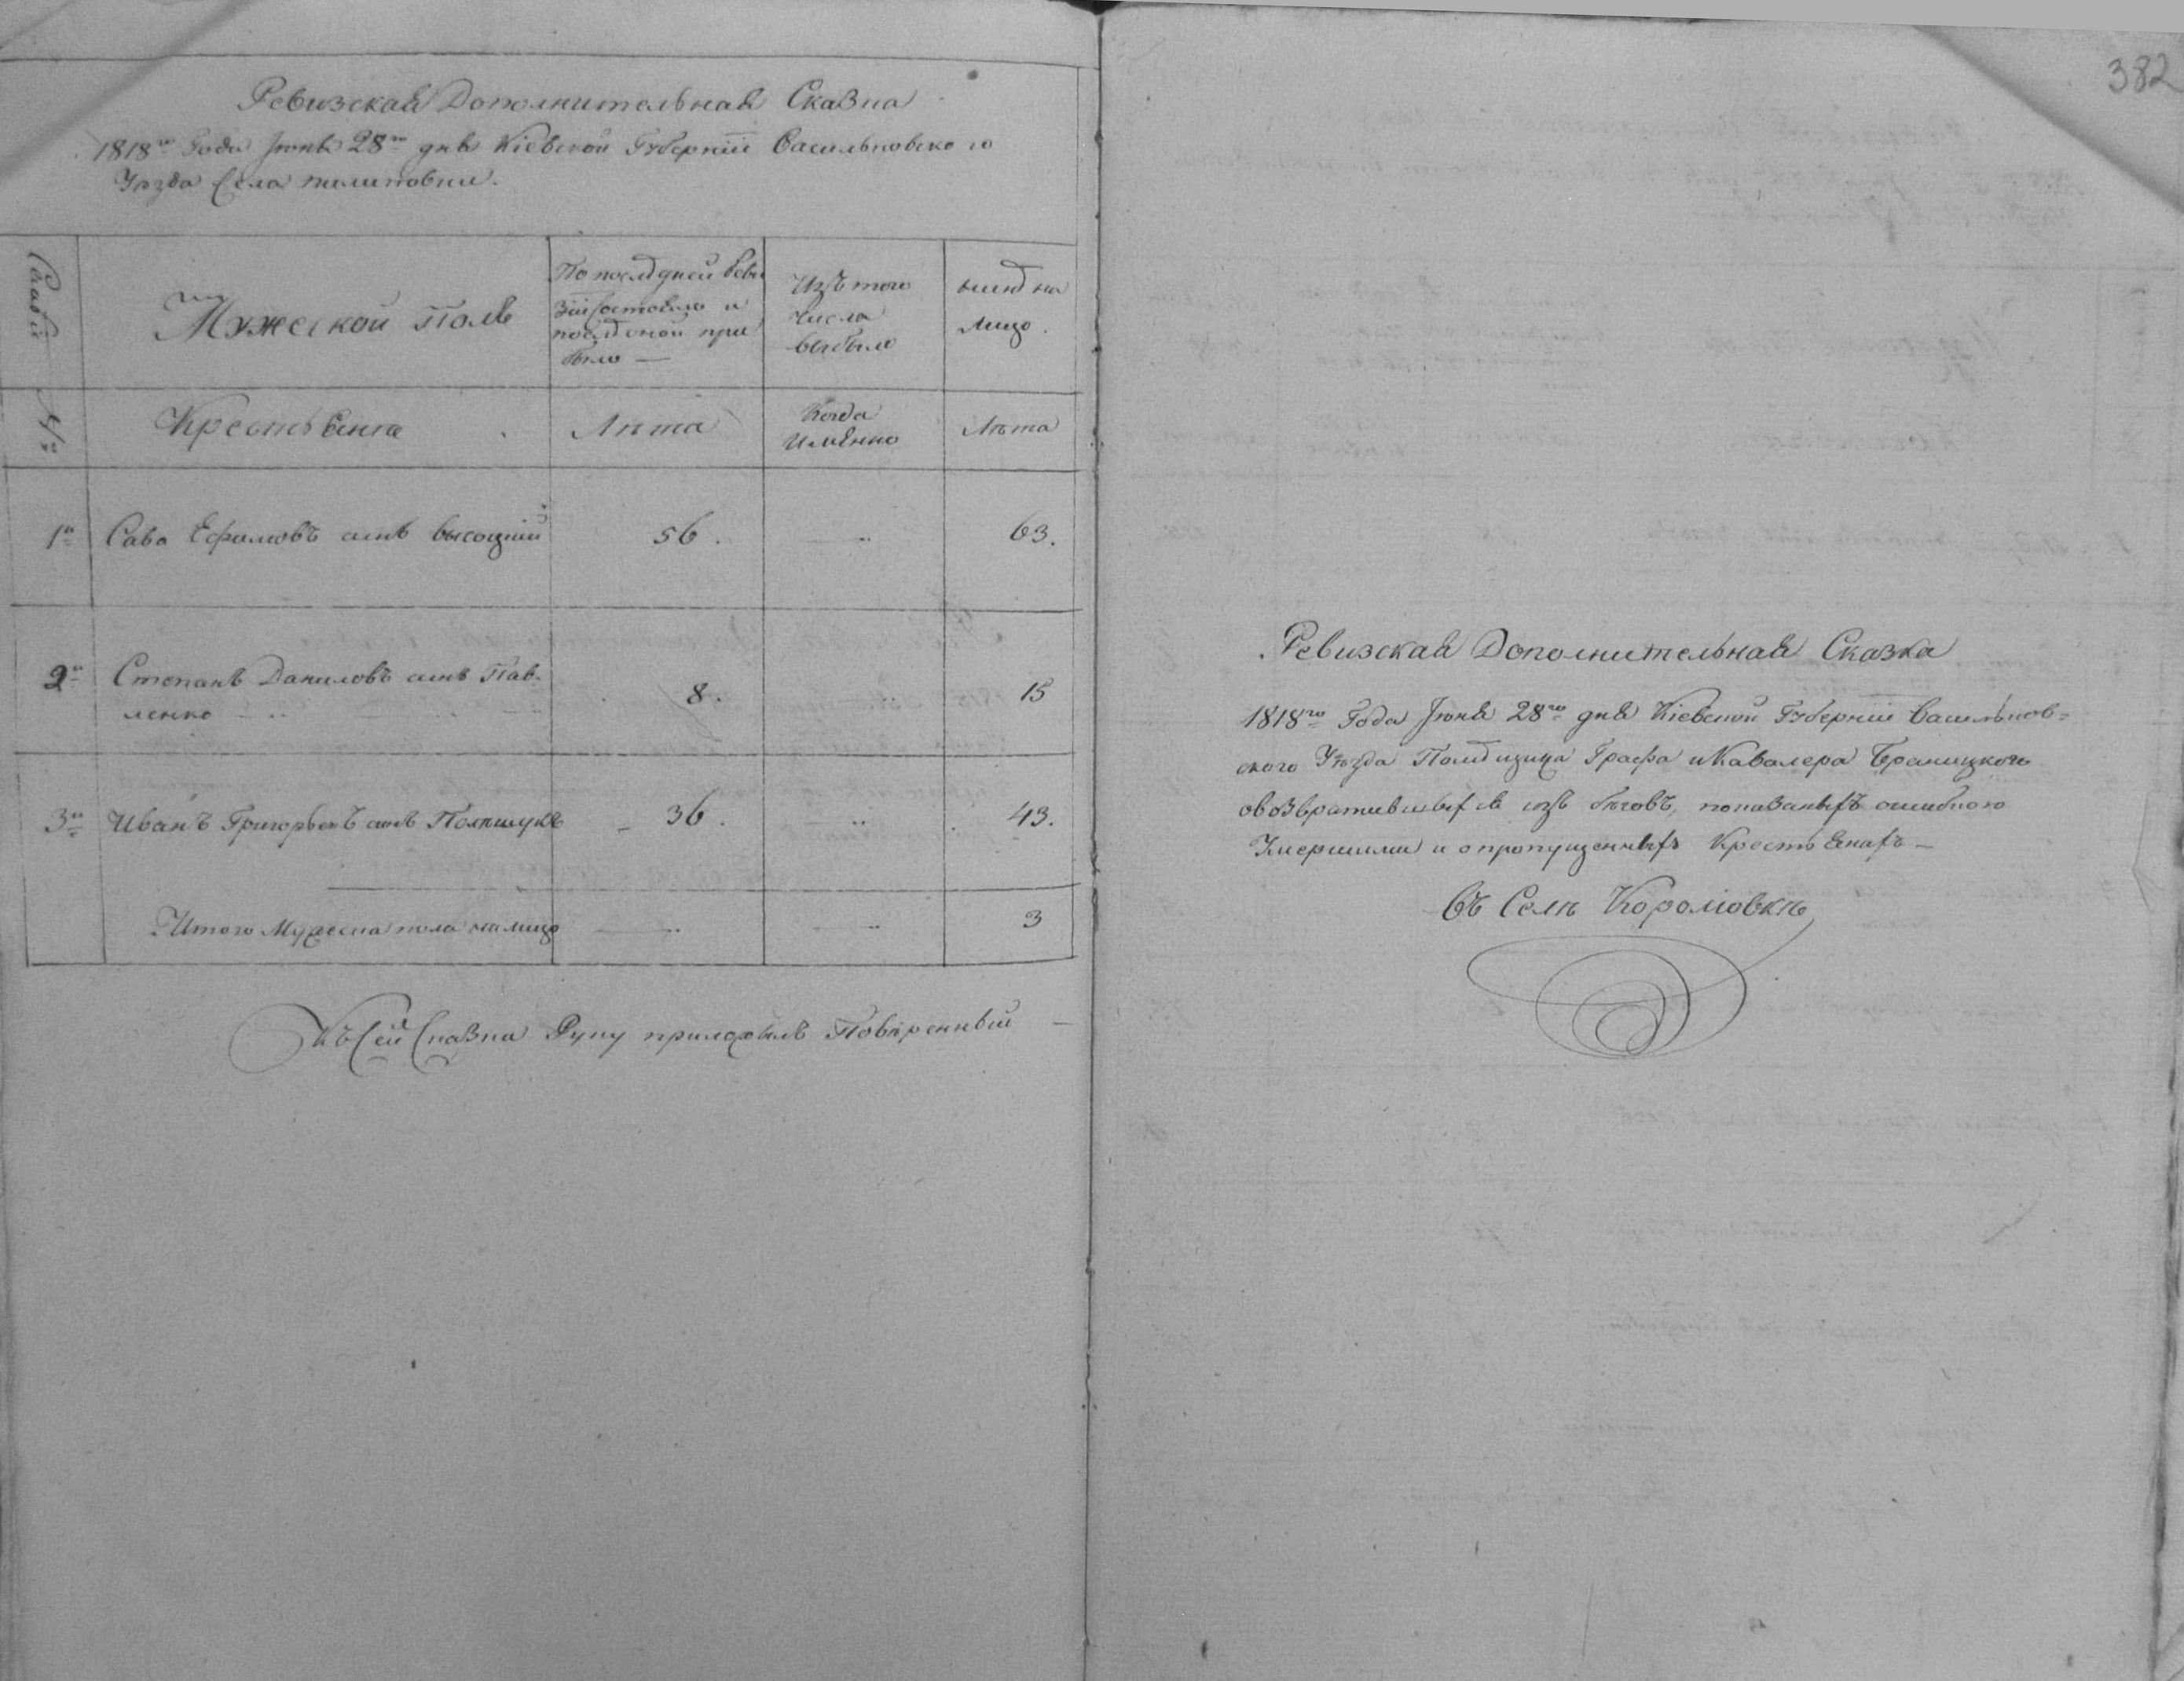 Ревизская Дополнительная Сказка
1818го Года Іюня 28го дня Кіевской Губерніи Васильковского
Уезда Села пилиповки.
Мужеской Полъ
По последней Реви
зіи состояло и
после оной при
было —
Изъ того
числа
выбыло
ныне на
лицо.
Крестьяне
Лѣта
Когда
Имянно
Лѣта
1й Сава Ефимовъ сынъ высоцкій 56. 63.
2й Степанъ Даниловъ сынъ Пав-
ленко 8. 15
3й Иванъ Григорьевъ сынъ Полищукъ 36. 43.
Итого Мужеска пола налицо 3
Къ Сей Сказки Руку приложилъ Повѣренный —
382
Ревизская Дополнительная Сказка
1818го Года Іюня 28го дня Кіевской Губерніи Васильков=
ского Уѣзда Помещица Графа и Кавалера Браницкого
овозвратившыхся изъ бѣговъ, показаныхъ ошибкою
Умершими и опропущенныхъ Крестьянахъ —
Въ Селѣ